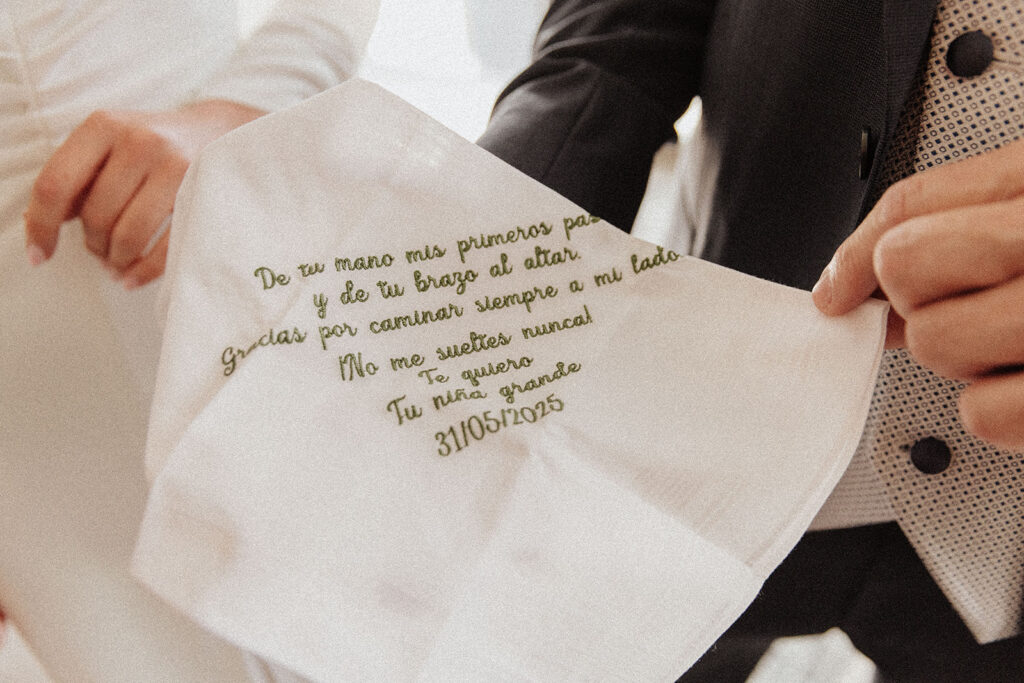 De tu mano mis primeros pas
y de tu brazo al altar.
Gracias por caminar siempre a mi lado
¡No me sueltes nunca!
Te quiero
Tu niña grande
31/05/2025